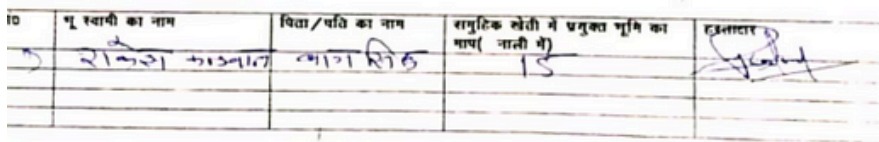 भू स्वामी का नाम
पिता/पति का नाम
सामुहिक खेती में प्रयुक्त भूमि का
माप( नाली में)
हस्ताक्षर
राकेश
सिंह
15